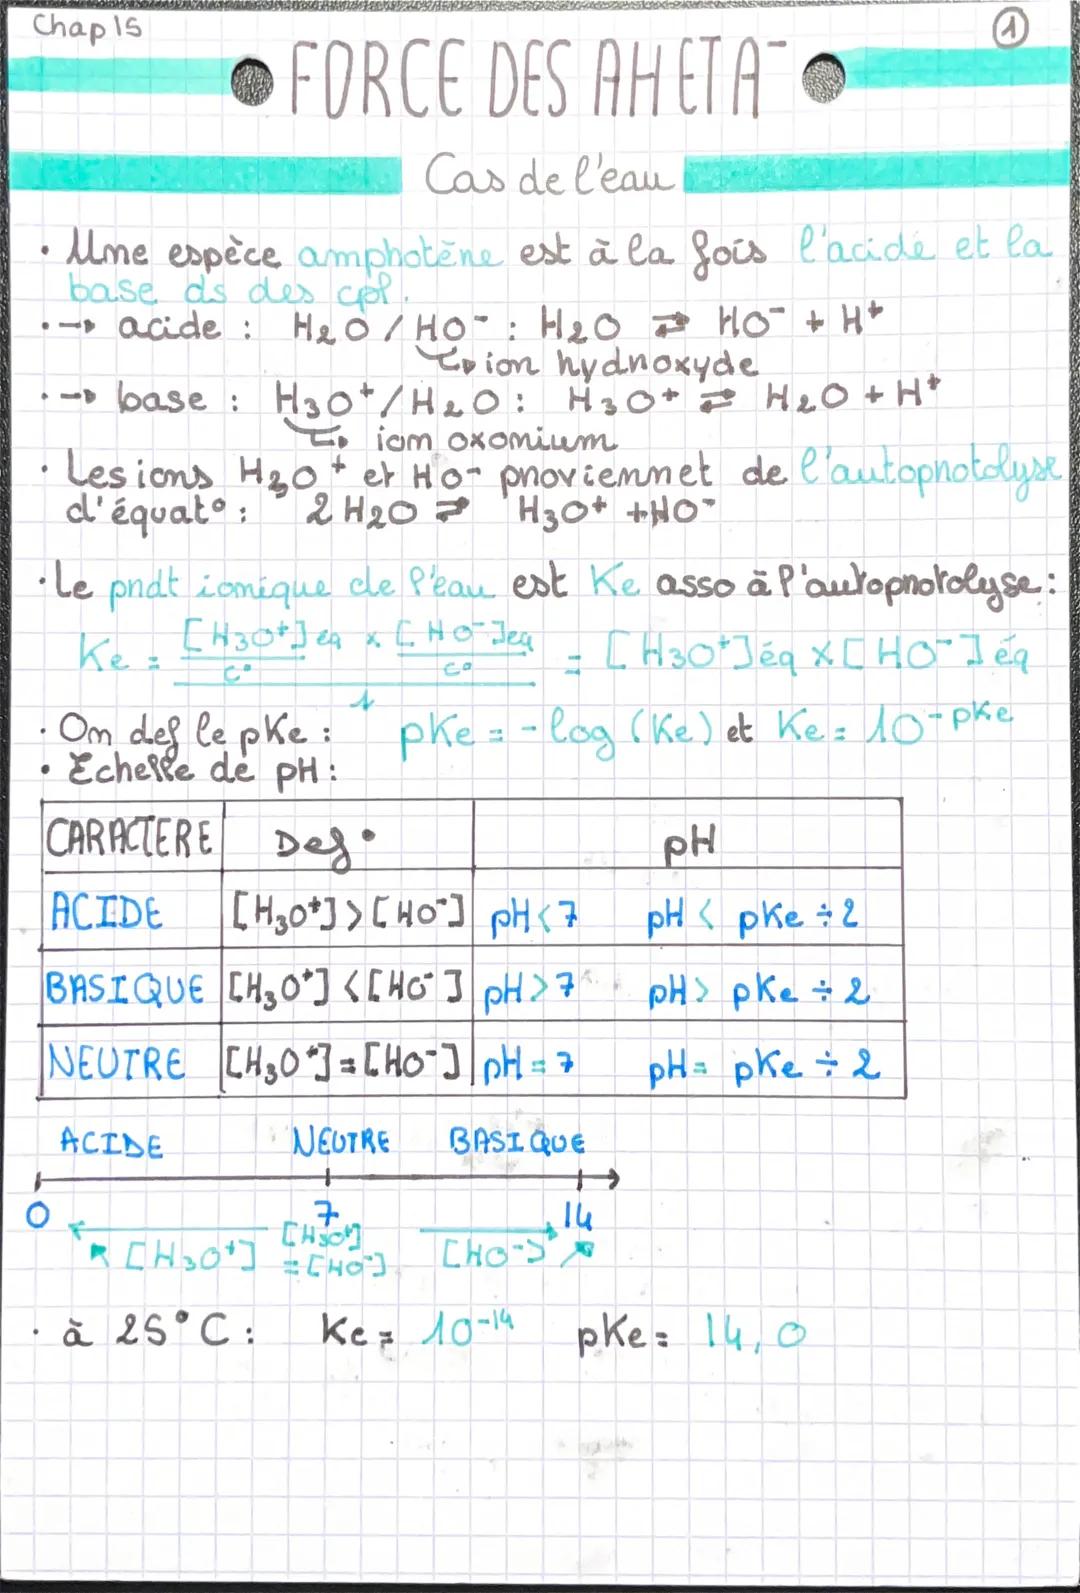 Chap 15
1
FORCE DES AH ET A⁻
Cas de l'eau
• Une espèce amphotère est à la fois l'acide et la
base ds des cpl.
• → acide : H₂O / HO⁻ : H₂O ⇄ HO⁻ + H⁺
↳ ion hydroxyde
• → base : H₃O⁺/H₂O : H₃O⁺ ⇄ H₂O + H⁺
↳ ion oxonium
• Les ions H₃O⁺ et HO⁻ proviennet de l'autoprotolyse
d'équat° : 2 H₂O ⇄ H₃O⁺ + HO⁻
• Le prdt ionique de l'eau est Ke asso à l'autoprotolyse :
Ke = [H₃O⁺]éq/c° × [HO⁻]éq/c° / 1 = [H₃O⁺]éq × [HO⁻]éq
• On def le pKe : pKe = - log (Ke) et Ke = 10^-pKe
• Echelle de pH :
CARACTERE Def° pH
ACIDE [H₃O⁺] > [HO⁻] pH < 7 pH < pKe ÷ 2
BASIQUE [H₃O⁺] < [HO⁻] pH > 7 pH > pKe ÷ 2
NEUTRE [H₃O⁺] = [HO⁻] pH = 7 pH = pKe ÷ 2
ACIDE NEUTRE BASIQUE
0 7 14
↖ [H₃O⁺] [H₃O⁺] = [HO⁻] [HO⁻] ↗
• à 25°C : Ke = 10⁻¹⁴ pKe = 14,0